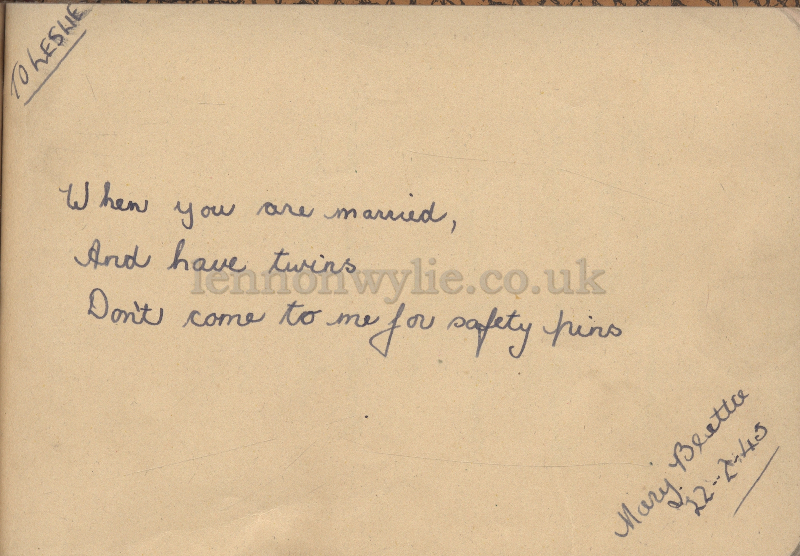 TO LESLIE
When you are married,
And have twins
Don't come to me for safety pins
lennonwylie.co.uk
Mary Beattie
22-2-45